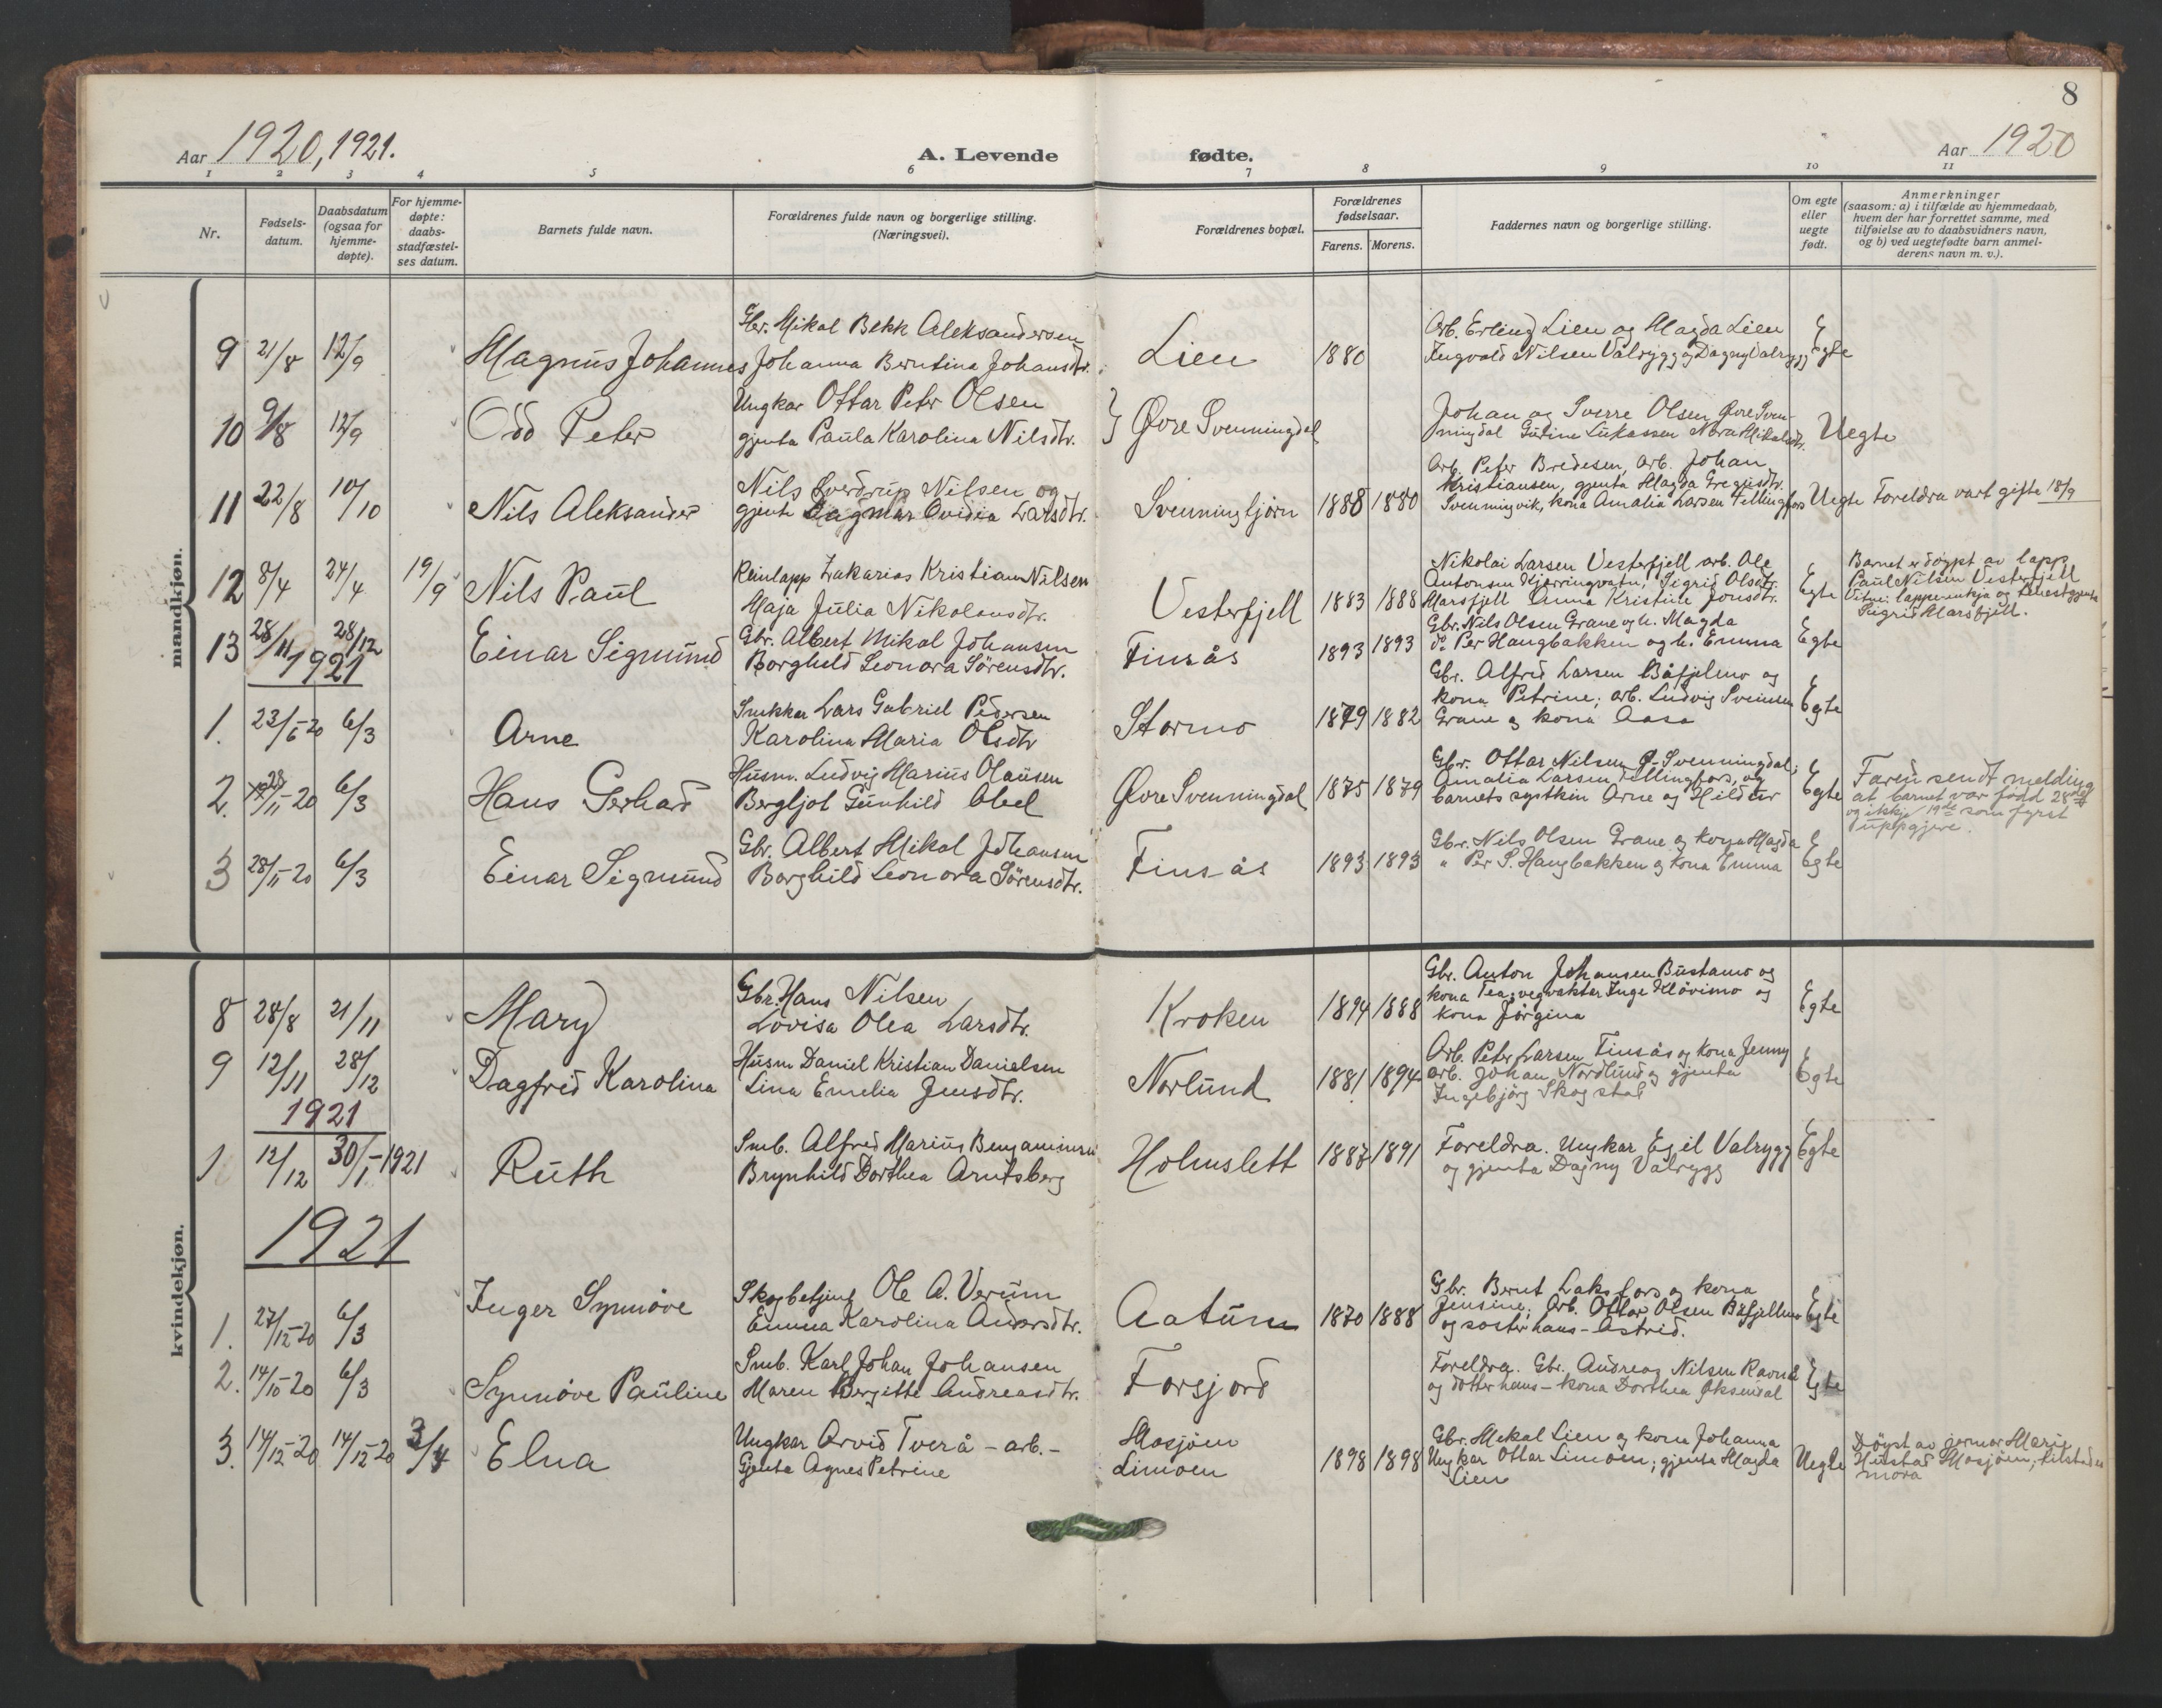 8
Aar 1920, 1921.
A. Levende fødte.
Aar 1920
1 2 3 4 5 6 7 8 9 10 11
Nr.
Fødsels-
datum.
Daabsdatum
(ogsaa for
hjemme-
døpte).
For hjemme-
døpte:
daabs-
stadfæstel-
ses datum.
Barnets fulde navn.
Forældrenes fulde navn og borgerlige stilling.
(Næringsvei).
Forældrenes bopæl.
Forældrenes
fødselsaar.
Farens. Morens.
Faddernes navn og borgerlige stilling.
Om egte
eller
uegte
født.
Anmerkninger
(saasom: a) i tilfælde av hjemmedaab,
hvem der har forrettet samme, med
tilføielse av to daabsvidners navn,
og b) ved uegtefødte barn anmel-
derens navn m. v.).
mandkjøn.
9 21/8 12/9 Magnus Johannes
Gbr. Mikal Bekk Aleksandersen
Johanna Berntina Johansdtr.
Lien 1880
Arb. Erling Lien og Magda Lien
Ingvald Nilsen Valrygg og Dagny Valrygg
Egte
10 9/8 12/9 Odd Peter
Ungkar Ottar Peter Olsen
gjenta Paula Karolina Nilsdtr.
Øvre Svenningdal
Johan og Sverre Olsen Øvre Sven-
ningdal Gurine Lukassen Nora Mikalsdtr.
Uegte
11 22/8 10/10 Nils Aleksander
Nils Sverdrup Nilsen og
gjenta Dagmar Ovidia Larsdtr.
Svenningtjørn 1888 1880
Arb. Peter Bredesen, arb. Johan
Kristiansen, gjenta Magda Gregusdtr.
Svenningvik, kona Amalia Larsen Fellingfors
Uegte
Foreldra vart gifte 18/9
12 8/4 24/4 19/9 Nils Paul
Reinlapp Zakarias Kristian Nilsen
Maja Julia Nikolausdtr.
Vesterfjell 1883 1888
Nikolai Larsen Vesterfjell arb. Ole
Antonsen Kjerringvatn, Sigrid Olsdtr.
Marsfjell Anna Kristine Jonsdtr.
Egte
Barnet er døypt av lapp
Paul Nilsen Vesterfjell
Vitne: lappe-enkja og
Sigrid Marsfjell.
13 28/11 28/12 Einar Sigmund
Gbr. Albert Mikal Johansen
Borghild Leonora Sørensdtr.
Finsås 1893 1893
Gbr. Nils Olsen Grane og h. Magda
do Per Haugbakken og h. Emma
Egte
1921
1. 23/6-20 6/3 Arne
Snekkar Lars Gabriel Pedersen
Karolina Maria Olsdtr
Stormo 1879 1882
Gbr. Alfred Larsen Båfjelmo og
kona Petrine; arb. Ludvig Svensen
Grane og kona Aasa
Egte
2. 28/11-20 6/3 Hans Gerhard
Husm. Ludvig Marius Olausen
Bergljot Gunhild Abel
Øvre Svenningdal 1875 1879
Gbr. Ottar Nilsen Ø-Svenningdal;
Amalia Larsen Fellingfors, og
barnets systkin Arne og Hildur
Egte
Faren sendt melding
at barnet var född 28de
og ikkje 19de som fyrst
uppgjeve.
3 28/11-20 6/3 Einar Sigmund
Gbr. Albert Mikal Johansen
Borghild Leonora Sörensdtr.
Finsås 1893 1893
Gbr. Nils Olsen Grane og kona Magda
" Per S. Haugbakken og kona Emma
Egte
kvindekjøn.
8 28/8 21/11 Mary
Gbr. Hans Nilsen
Lovisa Olea Larsdtr.
Kroken 1894 1888
Gbr. Anton Johansen Bustamo og
kona Tea; vegvaktar Inge Kløvimo og
kona Jørgina
Egte
9 12/11 28/12 Dagfrid Karolina
Husm Daniel Kristian Danielsen
Lina Emelia Jensdtr.
Norlund 1881 1894
Arb. Peter Larsen Finsås og kona Jenny
arb. Johan Nordlund og gjenta
Ingebjörg Skogstad
Egte
1921
1 12/12 30/1-1921 Ruth
Smb. Alfred Marius Benjaminsen
Brynhild Dorthea Arntsberg
Holmslett 1887 1891
Foreldra. Ungkar Egil Valrygg
og gjenta Dagny Valrygg
Egte
1921
1. 27/12-20 6/3 Inger Synnöve
Skogbetjent Ole A. Verum
Emma Karolina Andersdtr.
Aatum 1870 1888
Gbr. Bernt Laksfors og kona
Jensine; Arb. Ottar Olsen Båfjellmo
og soster hans - Astrid.
Egte
2. 14/10-20 6/3 Synnöve Pauline
Smb. Karl Johan Johansen
Maren Bergitte Andreasdtr.
Forsjord
Foreldra. Gbr. Andreas Nilsen Ravnå
og dotter hans - kona Dorthea Øksendal
Egte
3. 14/12-20 14/12-20 3/4 Elna
Ungkar Arvid Tverå - arb. -
Gjenta Agnes Petrine
Mosjøen
Limoen
1898 1898
Gbr. Mekal Lien og kona Johanna
Ungkar Ottar Limoen; gjenta Magda
Lien
Uegte
Döypt av jormor Marie
Hustad Mosjøen;
mora